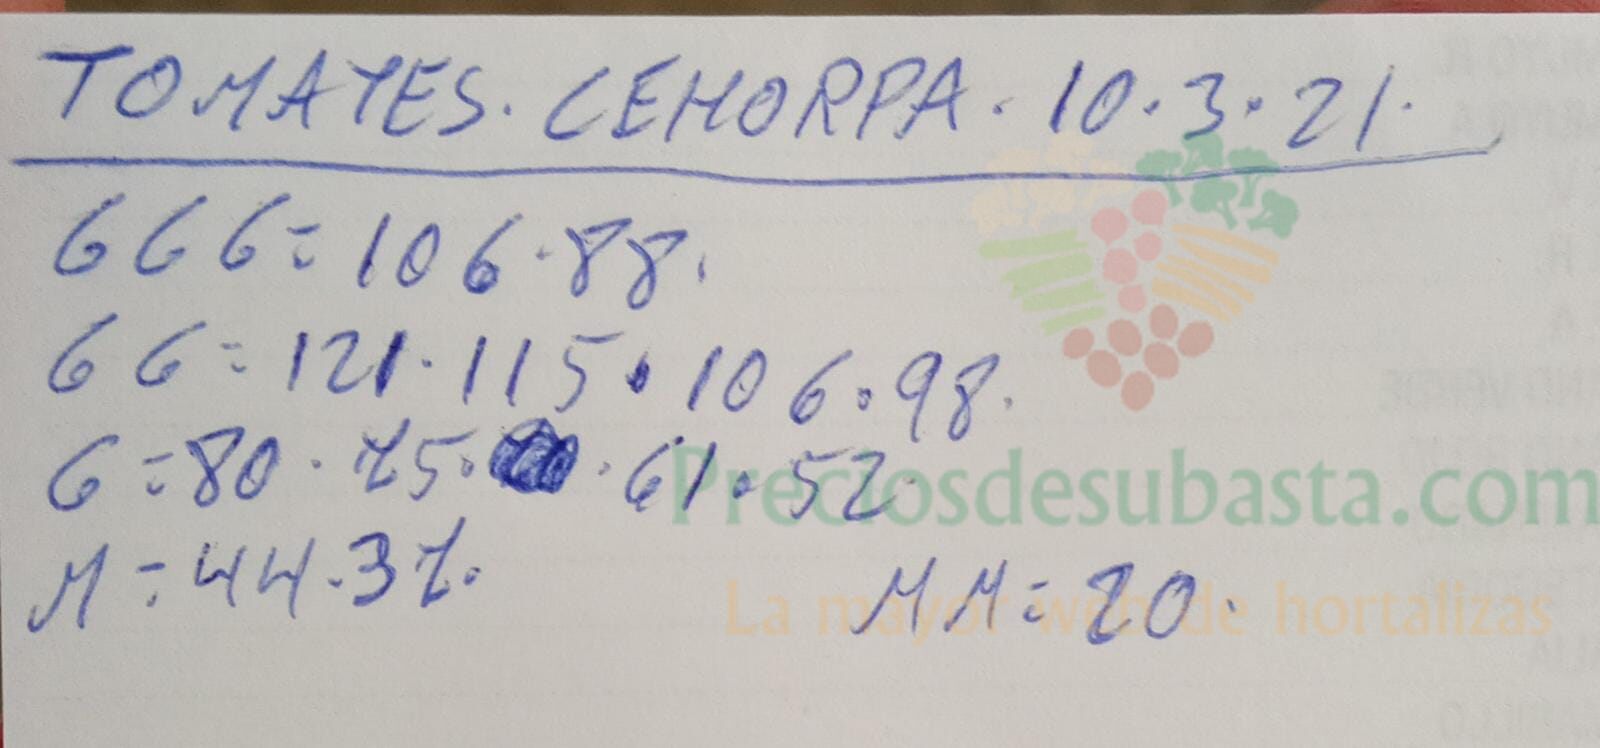 TOMATES. CEHORPA. 10.3.21.
GGG=106.88.
GG=121.115.106.98.
G=80.75. .61.52.
M=44.37. MM=20.
Preciosdesubasta.com
La mayor web de hortalizas